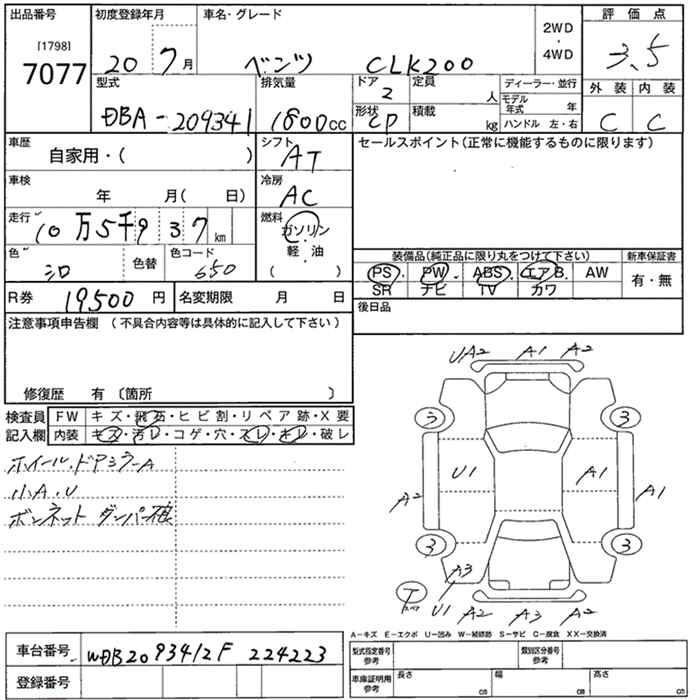 出品番号
[1798]
7077
初度登録年月
20 7月
車名・グレード
ベンツ CLK200
2WD
・
4WD
評価点
3.5
型式
DBA-209341
排気量
1800cc
ドア
2
定員
人
形状
CP
積載
kg
ディーラー・並行
モデル年式 年
ハンドル 左・右
外装 内装
C C
車歴
自家用・( )
シフト
AT
セールスポイント(正常に機能するものに限ります)
車検
年 月( 日)
冷房
AC
走行
10万5千937km
燃料
ガソリン
軽・油
( )
色
シロ
色替
色コード
650
装備品(純正品に限り丸をつけて下さい)
新車保証書
PS・PW・ABS・エアB. AW
SR ナビ TV カワ
有・無
R券 19500円
名変期限 月 日
後日品
注意事項申告欄 (不具合内容等は具体的に記入して下さい)
修復歴 有 〔箇所 〕
検査員
記入欄
FW キズ・飛石・ヒビ割・リペア跡・X要
内装 キズ・汚レ・コゲ・穴・スレ・キレ・破レ
ホイール、ドアミラーA
小A.U
ボンネット ダンパー損
UA2 A1 A2
3 3
U1 A1
A2 A1
3 3
A3
T
U1 A2 A3 A2
A-キズ E-エクボ U-凹み W-補修跡 S-サビ C-腐食 XX-交換済
車台番号 WDB2093412F224223
登録番号
型式指定番号
参考
類別区分番号
参考
車庫証明用
参考
長さ cm
幅 cm
高さ cm